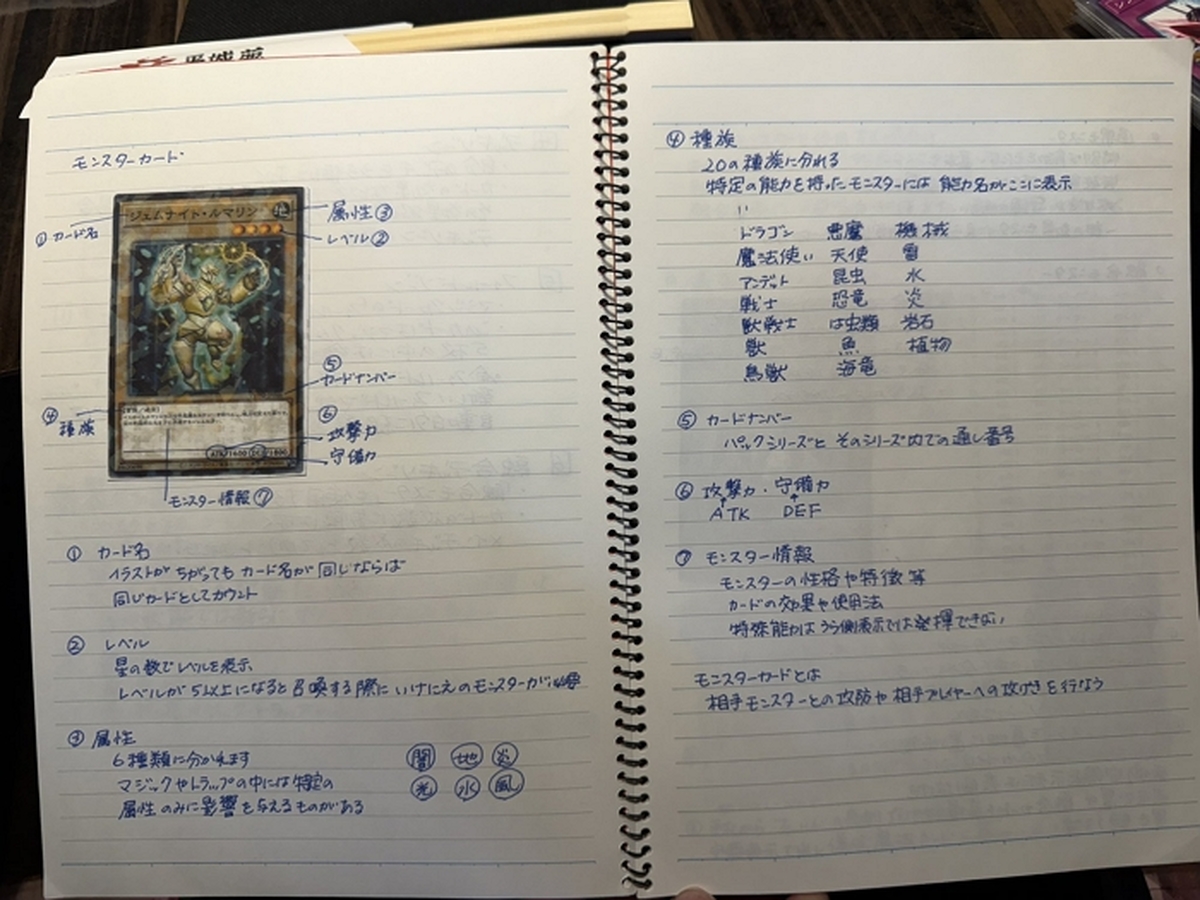 モンスターカード
ジェムナイト・ルマリン
地
①カード名
属性③
レベル②
⑤
カードナンバー
④
種族
⑥
攻撃力
守備力
ATK/1600 DEF/1800
モンスター情報⑦
① カード名
イラストがちがってもカード名が同じならば
同じカードとしてカウント
② レベル
星の数でレベルを表示
レベルが5以上になると召喚する際にいけにえのモンスターが必要
③ 属性
6種類に分かれます
マジックやトラップの中には特定の
属性のみに影響を与えるものがある
闇 地 炎
光 水 風
④ 種族
20の種族に分れる
特定の能力を持ったモンスターには能力名がここに表示
ドラゴン 悪魔 機械
魔法使い 天使 雷
アンデット 昆虫 水
戦士 恐竜 炎
獣戦士 は虫類 岩石
獣 魚 植物
鳥獣 海竜
⑤ カードナンバー
パックシリーズとそのシリーズ内での通し番号
⑥ 攻撃力・守備力
ATK DEF
⑦ モンスター情報
モンスターの性格や特徴等
カードの効果や使用法
特殊能力はうら側表示では発揮できない
モンスターカードとは
相手モンスターとの攻防や相手プレイヤーへの攻げきを行なう